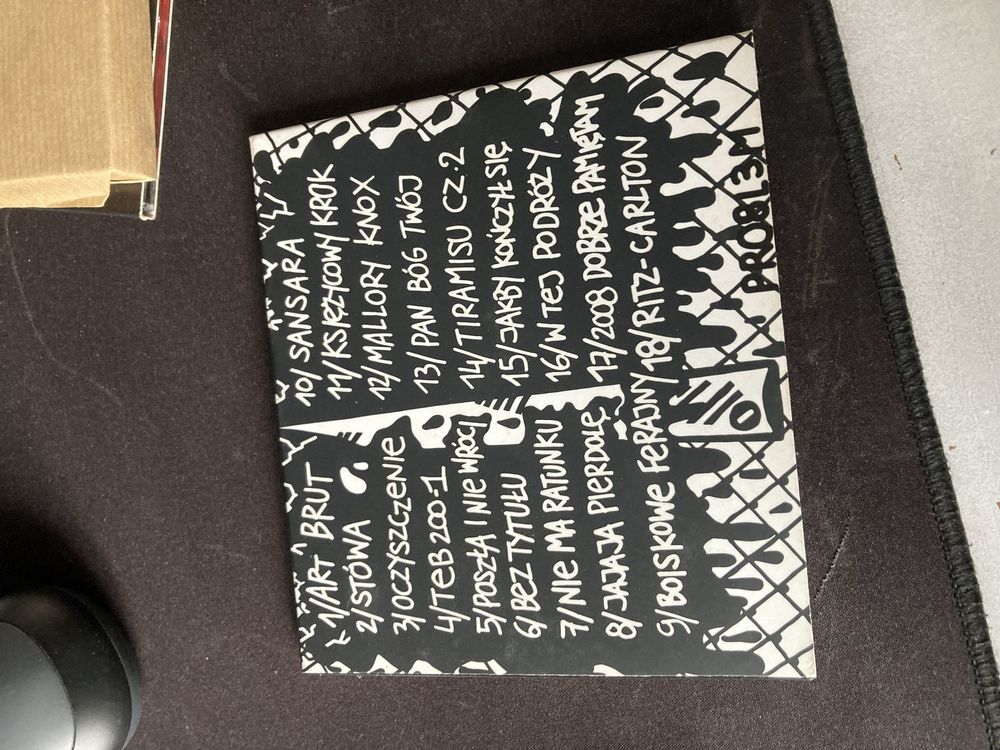 1/ART BRUT
2/STÓWA
3/OCZYSZCZENIE
4/TEB 200-1
5/POSZŁA I NIE WRÓCI
6/BEZ TYTUŁU
7/NIE MA RATUNKU
8/JAJAJA PIERDOLĘ
9/BOISKOWE FERAJNY
10/SANSARA
11/KSIĘŻYCOWY KROK
12/MALLORY KNOX
13/PAN BÓG TWÓJ
14/TIRAMISU CZ.2
15/JAKBY KOŃCZYŁ SIĘ
16/W TEJ PODRÓŻY
17/2008 DOBRZE PAMIĘTAM
18/RITZ-CARLTON
PRO8L3M